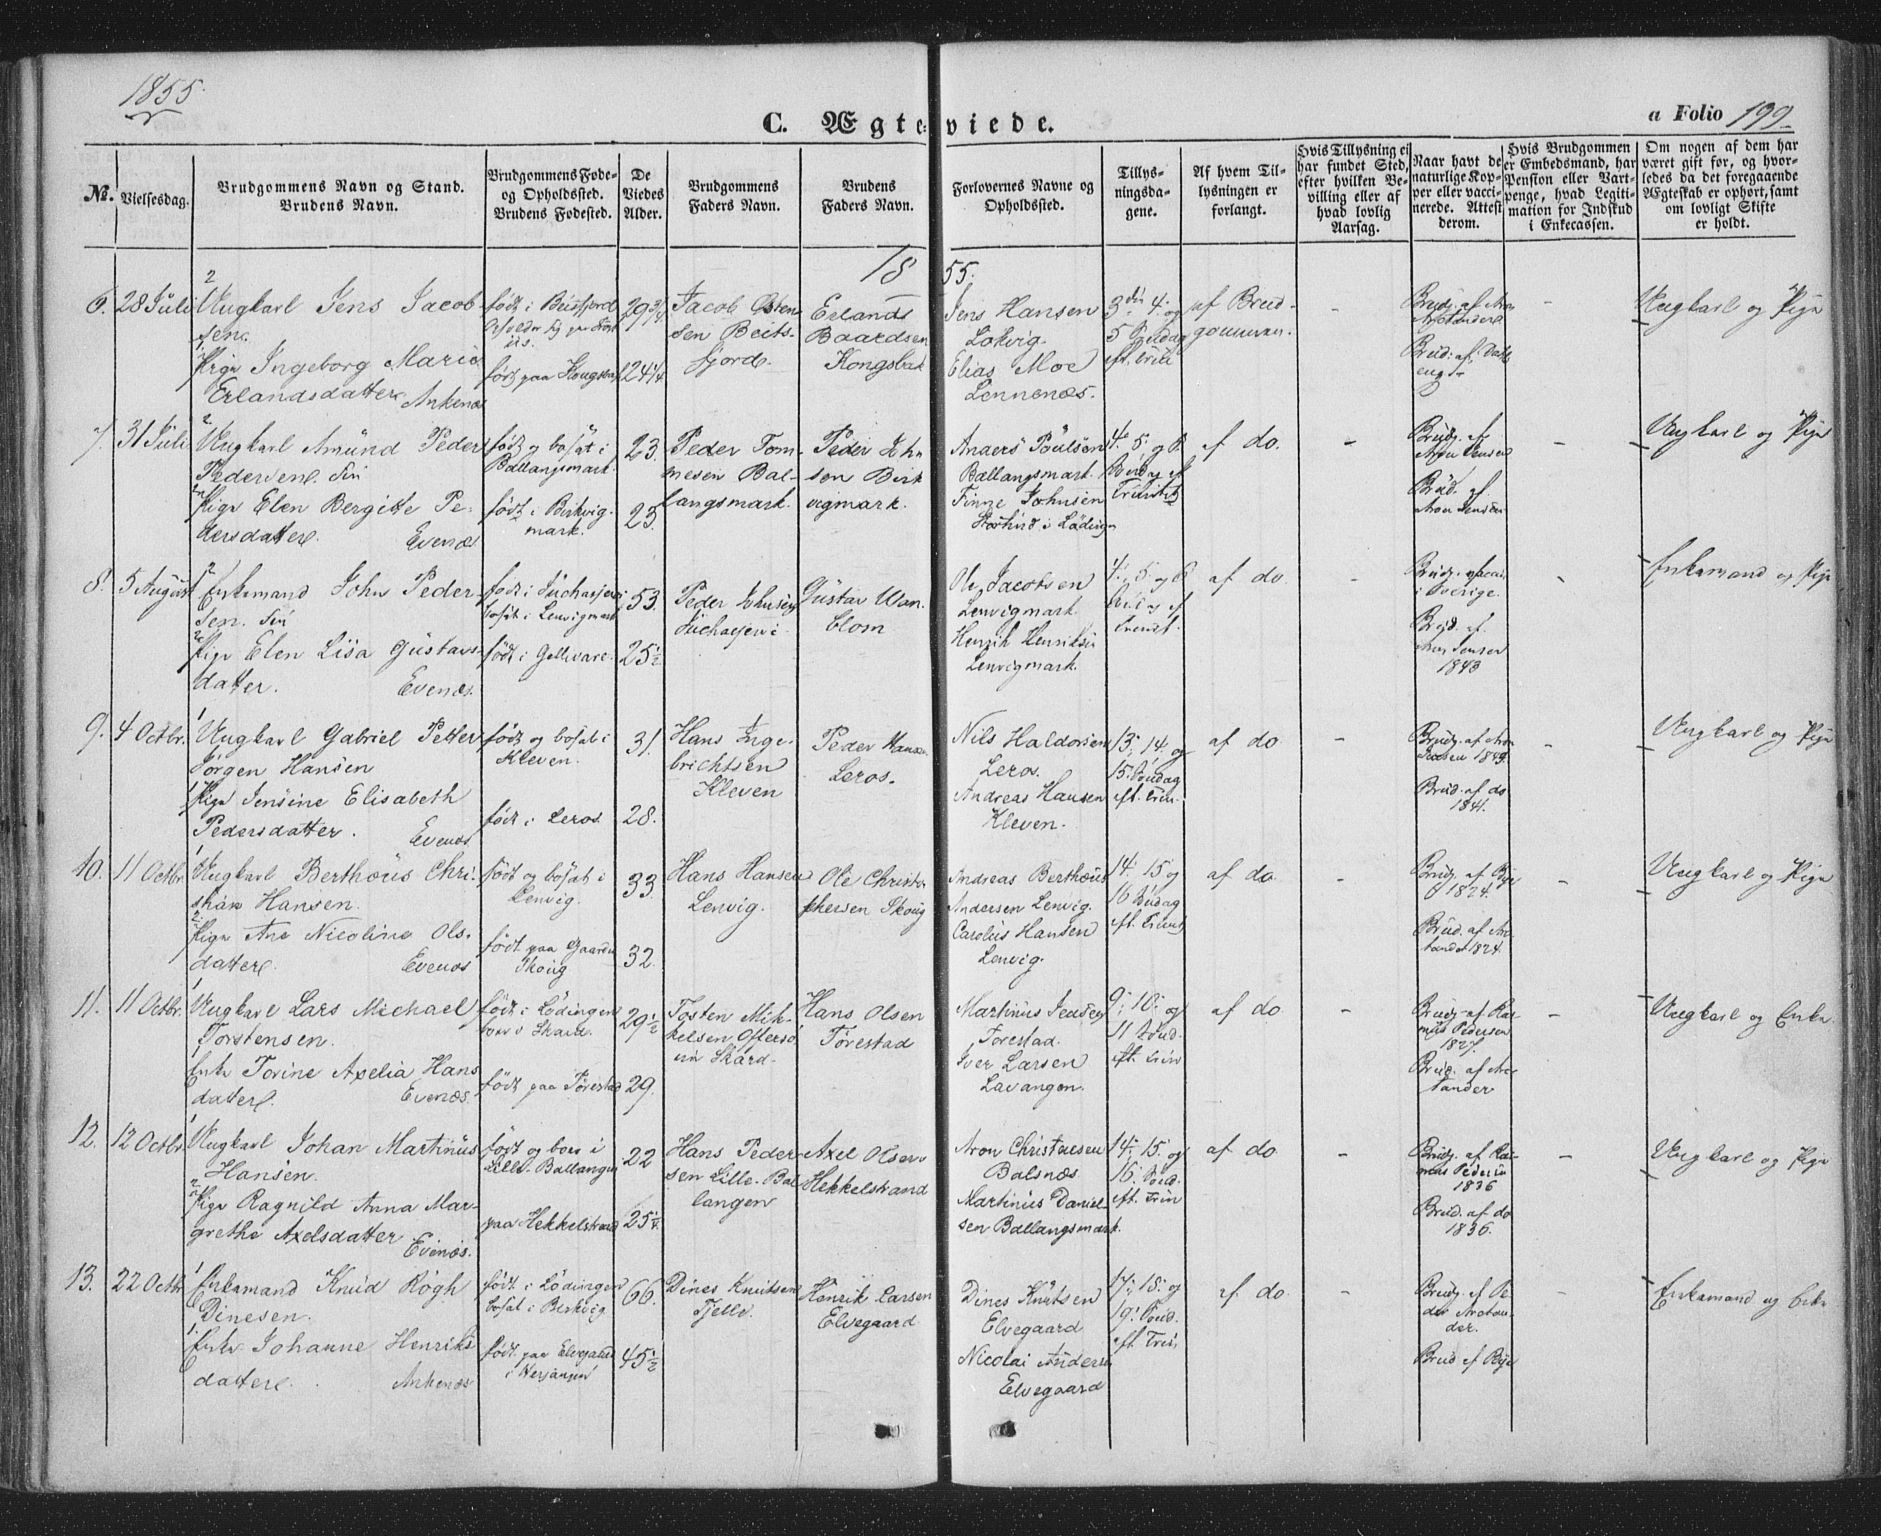 1855.
C. Ægteviede.
a Folio 199
No.
Vielsesdag.
Brudgommens Navn og Stand.
Brudens Navn.
Brudgommens Føde-
og Opholdssted.
Brudens Fødested.
De
Viedes
Alder.
Brudgommens
Faders Navn.
Brudens
Faders Navn.
Forlovernes Navne og
Opholdssted.
Tillys-
ningsda-
gene.
Af hvem Til-
lysningen er
forlangt.
Hvis Tillysning ei
har fundet Sted,
efter hvilken Be-
villing eller af
hvad lovlig
Aarsag.
Naar havt de
naturlige Kop-
per eller vacci-
nerede. Attest
derom.
Hvis Brudgommen
er Embedsmand, har
Pension eller Vart-
penge, hvad Legiti-
mation for Indskud
i Enkecassen.
Om nogen af dem har
været gift før, og hvor-
ledes da det foregaaende
Ægteskab er ophørt, samt
om lovligt Skifte
er holdt.
1855.
6. 28 Juli
Ungkarl Jens Jacob-
sen.
Pige Ingeborg Marie
Erlandsdatter Ankenæs
født i Beisfjord
født paa Kongsbak
29 3/4
24 1/4
Jacob Østen-
sen Beits-
fjord.
Erlands
Baardsen
Kongsbak
Jens Hansen
Lokvig.
Elias Moe
Lennenæs.
3die 4. og
5 Søndag
eft. Trin
af Brud-
gommen.
Brudg. af Aron
Brud. af
Ungkarl og Pige
7. 31 Juli
Ungkarl Amund Peder
Pedersen. Fin
Pige Elen Bergitte Pe-
dersdatter. Evenæs
født og bosat i
Ballangsmark.
født i Birkvig-
mark.
23.
23.
Peder Tom-
mesen Bal-
langsmark.
Peder John
sen Birk
vigmark.
Anders Poulsen
Ballangsmark.
Finne Johnsen
i Lødingen
4. 5. og 6.
Søndag ef
Trinitat.
af do.
Brudg. af
Aron Jensen
Brud. af
Aron Jensen
Ungkarl og Pige
8. 5 August
Enkemand John Peder-
sen. Fin
Pige Elen Lisa Gustavs-
datter. Evenæs.
født i Juchasjervi
bosat i Lenvigmark
født i Gellivare
53.
25 1/2
Peder Johnsen
Juchasjervi
Gustav Wan-
blom
Ole Jacobsen
Lenvigmark.
Henrik Henriksen
Lenvigmark.
4. 5. og 6
af do.
Brudg. vacci.
i Sverige.
Brud. af
Aron Jensen
1843
Enkemand og Pige
9. 4 Octbr.
Ungkarl Gabriel Petter
Jørgen Hansen
Pige Jensine Elisabeth
Pedersdatter. Evenæs
født og bosat i
Kleven.
født i Leros.
31.
28.
Hans Inge-
brichtsen
Kleven
Peder Hansen
Leros.
Nils Haldorsen
Leros.
Andreas Hansen
Kleven.
13. 14. og
15. Søndag
eft. Trin.
af do.
Brudg. af Aron
Brud. af do
1841.
Ungkarl og Pige
10. 11 Octbr
Ungkarl Berthous Chri-
stian Hansen.
Pige Ane Nicoline Ols-
datter. Evenæs
født og bosat i
Lenvig.
født paa Gaarden
Skoug
33.
32.
Hans Hansen
Lenvig.
Ole Christo-
phersen Skoug
Andreas Berthous
Andersen Lenvig.
Carolus Hansen
Lenvig.
14. 15 og
16 Søndag
eft. Trinit.
af do.
Brudg. af Bye
1824.
Brud. af Ar-
tander 1824.
Ungkarl og Pige
11. 11 Octbr.
Ungkarl Lars Michael
Torstensen.
Enke Torine Axelia Hans
datter. Evenæs.
født i Lødingen
boer i Skard.
født paa Forestad
29 1/2
29.
Tosten Mik-
kelsen
Skard.
Hans Olsen
Forestad
Martinus Jensen
Forestad.
Iver Larsen
Lavangen.
9. 10. og
11 Sønd.
eft. Trin
af do
Brudg. af Ras-
mus Pedersen
1827.
Brud. af Ar-
tander
Ungkarl og Enke
12. 12 Octbr
Ungkarl Johan Martinus
Hansen.
Pige Ragnild Anna Mar-
grethe Axelsdatter
Evenæs.
født og boer i
Lille-Ballangen
paa Hekkelstrand
22
25 1/4
Hans Peder-
sen Lille-Bal-
langen
Axel Olsen
Hekkelstrand
Aron Christensen
Balsnæs
Martinus Daniel-
sen Ballangsmark.
14. 15. og
16. Sønd.
eft. Trin
af do
Brudg. af Ras-
mus Pedersen
1836
Brud. af do
1836.
Ungkarl og Pige
13. 22 Octbr
Enkemand Knud Røgh
Dinesen.
Enke Johanne Henriks
datter. Ankenæs
født i Lødingen
bosat i Birkvig
født paa Elvegaard
i Herjangen
66.
45 1/2
Dines Knutsen
Tjelle.
Henrik Larsen
Elvegaard
Dines Knutsen
Elvegaard
Nicolai Andersen
Elvegaard
17. 18. og
19. Sønd.
eft. Trin
af do.
Brudg. af Pe-
der Arctan-
der.
Brud af Bye
Enkemand og Enke